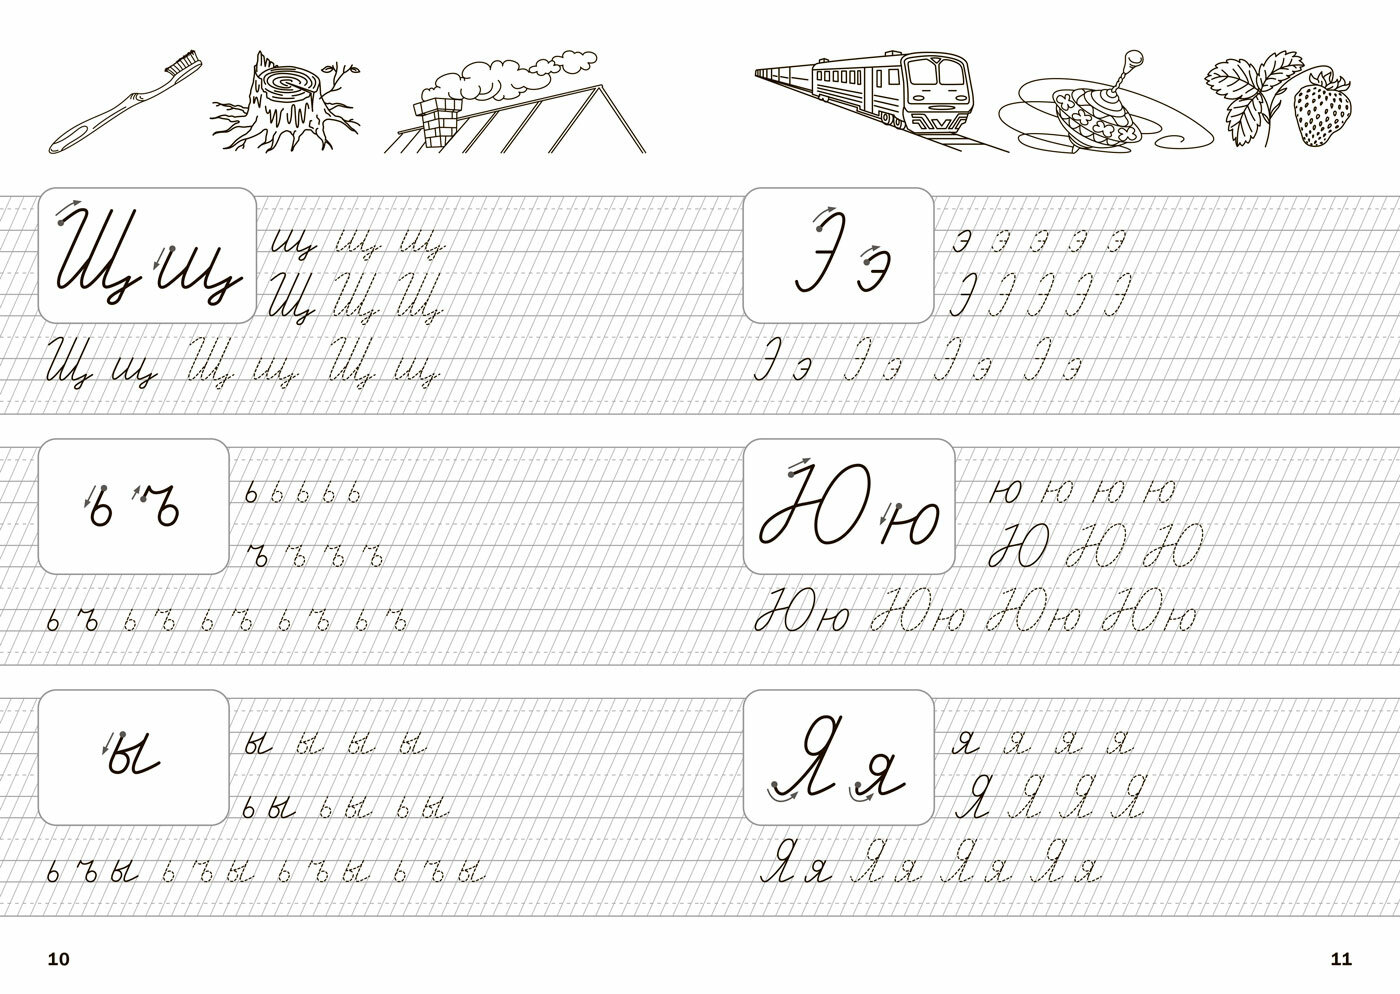 Щ щ
щ щ щ
Щ Щ Щ
Щ щ Щ щ Щ щ
ь ъ
ь ь ь ь ь
ъ ъ ъ ъ
ь ъ ь ъ ь ъ ь ъ ь ъ
ы
ы ы ы ы
ь ы ь ы ь ы
ь ъ ы ь ъ ы ь ъ ы ь ъ ы
10
Э э
э э э э э
Э Э Э Э Э
Э э Э э Э э Э э
Ю ю
ю ю ю ю
Ю Ю Ю
Ю ю Ю ю Ю ю Ю ю
Я я
я я я я
Я Я Я Я
Я я Я я Я я Я я
11